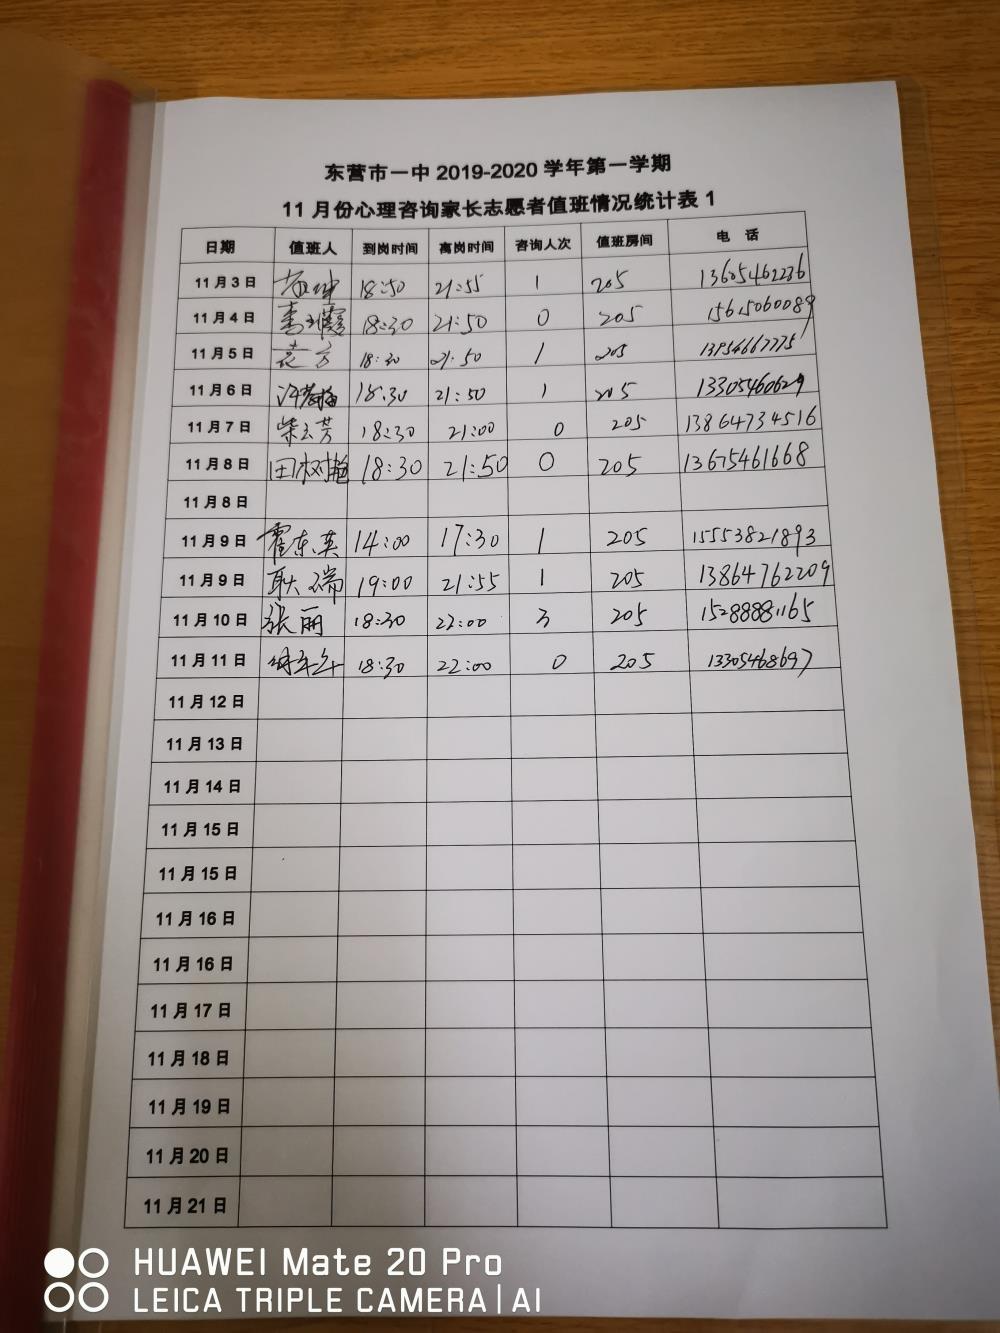 东营市一中 2019-2020 学年第一学期
11 月份心理咨询家长志愿者值班情况统计表 1
日期 值班人 到岗时间 离岗时间 咨询人次 值班房间 电 话
11 月 3 日 18:50 21:55 1 205 13605462236
11 月 4 日 18:30 21:50 0 205 15615060089
11 月 5 日 袁方 18:30 21:50 1 205 13954667775
11 月 6 日 18:30 21:50 1 205 13305460629
11 月 7 日 柴云芳 18:30 21:00 0 205 13864734516
11 月 8 日 田树艳 18:30 21:50 0 205 13675461668
11 月 8 日
11 月 9 日 霍东英 14:00 17:30 1 205 15553821893
11 月 9 日 耿瑞 19:00 21:55 1 205 13864762209
11 月 10 日 张丽 18:30 22:00 3 205 15288881165
11 月 11 日 18:30 22:00 0 205 13305468697
11 月 12 日
11 月 13 日
11 月 14 日
11 月 15 日
11 月 15 日
11 月 16 日
11 月 16 日
11 月 17 日
11 月 18 日
11 月 19 日
11 月 20 日
11 月 21 日
HUAWEI Mate 20 Pro
LEICA TRIPLE CAMERA | AI